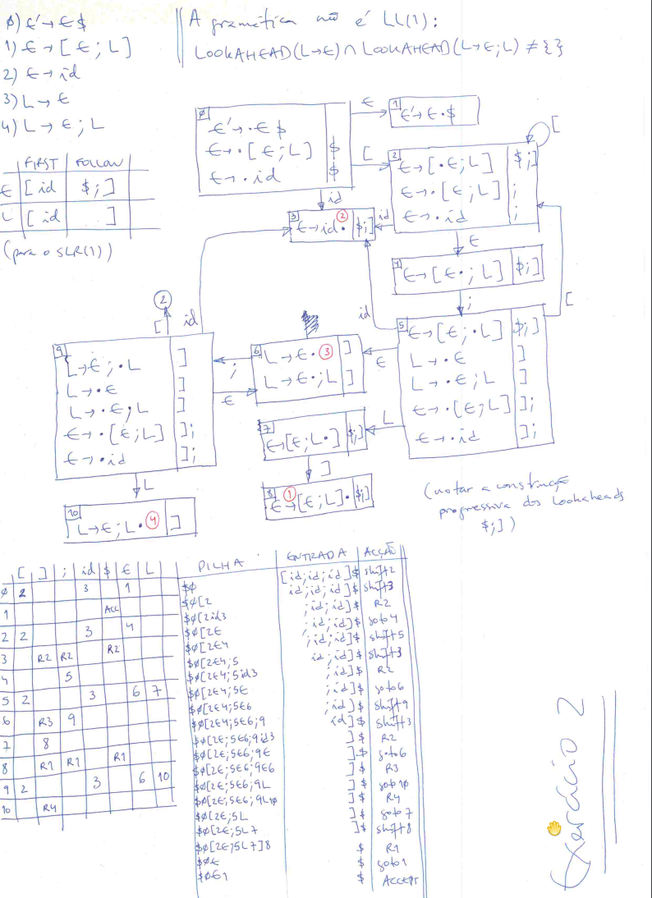 0) E' → E $
1) E → [ E ; L ]
2) E → id
3) L → E
4) L → E ; L
A gramática não é LL(1):
LOOKAHEAD(L→E) ∩ LOOKAHEAD(L→E;L) ≠ {}
FIRST FOLLOW
E [ id $ ; ]
L [ id ]
(para o SLR(1))
0
E' → · E $
E → · [E;L] $
E → · id $
E
1
E' → E · $
[
2
E → [· E;L] $;]
E → · [E;L] ;
E → · id ;
[
id
3
E → id · 2 $;]
id
E
4
E → [E · ; L] $;]
;
[
id
5
E → [E; · L] $;]
L → · E ]
L → · E;L ]
E → · [E;L] ];
E → · id ];
E
6
L → E · 3 ]
L → E · ; L ]
;
E
2
[
id
9
L → E; · L ]
L → · E ]
L → · E;L ]
E → · [E;L] ];
E → · id ];
L
7
E → [E;L · ] $;]
]
8
1
E → [E;L] · $;]
L
10
L → E;L · 4 ]
(notar a construção
progressiva dos lookaheads
$;])
[ ] ; id $ E L
0 2 3 1
1 ACC
2 2 3 4
3 R2 R2 R2
4 5
5 2 3 6 7
6 R3 9
7 8
8 R1 R1 R1
9 2 3 6 10
10 R4
PILHA ENTRADA ACÇÃO
$0 [id;id;id]$ shift2
$0[2 id;id;id]$ shift3
$0[2id3 ;id;id]$ R2
$0[2E ;id;id]$ goto4
$0[2E4 ;id;id]$ shift5
$0[2E4;5 id;id]$ shift3
$0[2E4;5id3 ;id]$ R2
$0[2E4;5E ;id]$ goto6
$0[2E4;5E6 ;id]$ shift9
$0[2E4;5E6;9 id]$ shift3
$0[2E;5E6;9id3 ]$ R2
$0[2E;5E6;9E ]$ goto6
$0[2E;5E6;9E6 ]$ R3
$0[2E;5E6;9L ]$ goto10
$0[2E;5E6;9L10 ]$ R4
$0[2E;5L ]$ goto7
$0[2E;5L7 ]$ shift8
$0[2E;5L7]8 $ R1
$0E $ goto1
$0E1 $ ACCEPT
Exercício 2